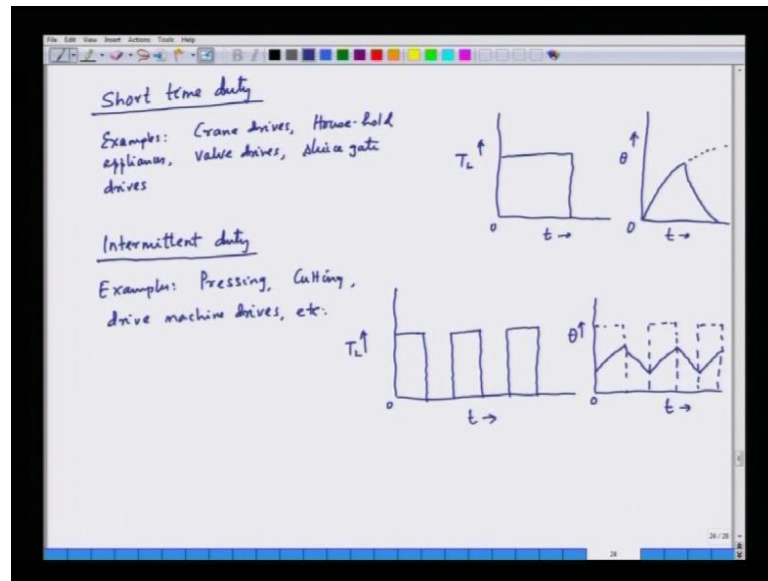 File Edit View Insert Actions Tools Help
Short time duty
Examples: Crane drives, House-hold
appliances, valve drives, sluice gate
drives
T_L ↑
0 t →
θ ↑
0 t →
Intermittent duty
Examples: Pressing, Cutting,
drive machine drives, etc.
T_L ↑
0 t →
θ ↑
0 t →
28 / 28
28